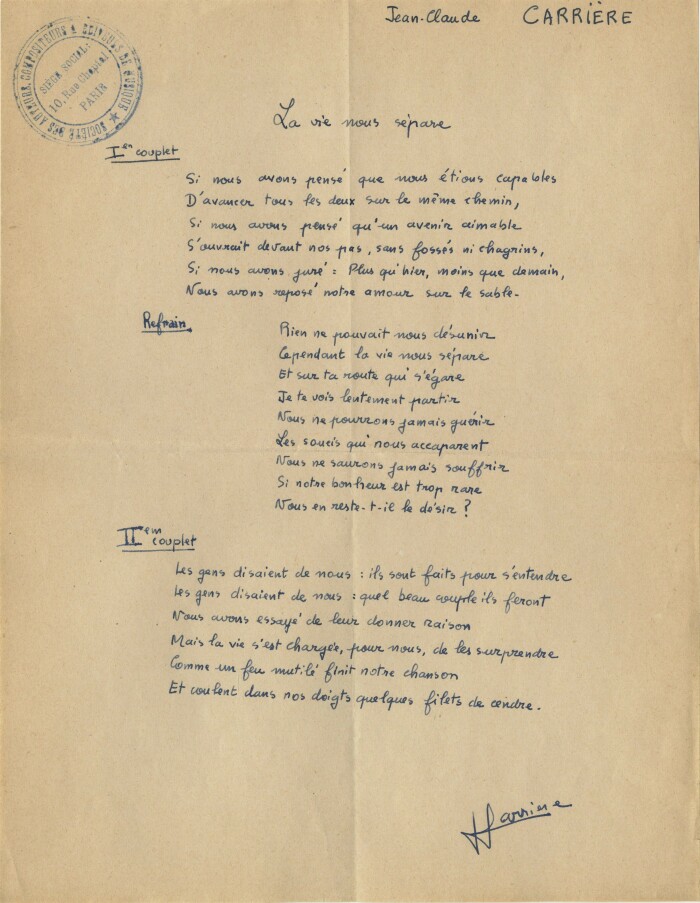 Jean-Claude CARRIÈRE
SOCIÉTÉ DES AUTEURS, COMPOSITEURS & ÉDITEURS DE MUSIQUE
SIÈGE SOCIAL:
10, Rue Chaptal
PARIS
La vie nous sépare
Ier couplet
Si nous avons pensé que nous étions capables
D'avancer tous les deux sur le même chemin,
Si nous avons pensé qu'un avenir aimable
S'ouvrait devant nos pas, sans fossés ni chagrins,
Si nous avons juré : Plus qu'hier, moins que demain,
Nous avons reposé notre amour sur le sable.
Refrain
Rien ne pouvait nous désunir
Cependant la vie nous sépare
Et sur ta route qui s'égare
Je te vois lentement partir
Nous ne pourrons jamais guérir
Les soucis qui nous accaparent
Nous ne saurons jamais souffrir
Si notre bonheur est trop rare
Nous en reste-t-il le désir ?
IIem couplet
Les gens disaient de nous : ils sont faits pour s'entendre
Les gens disaient de nous : quel beau couple ils feront
Nous avons essayé de leur donner raison
Mais la vie s'est chargée, pour nous, de les surprendre
Comme un feu mutilé finit notre chanson
Et coulent dans nos doigts quelques filets de cendre.
Carrière